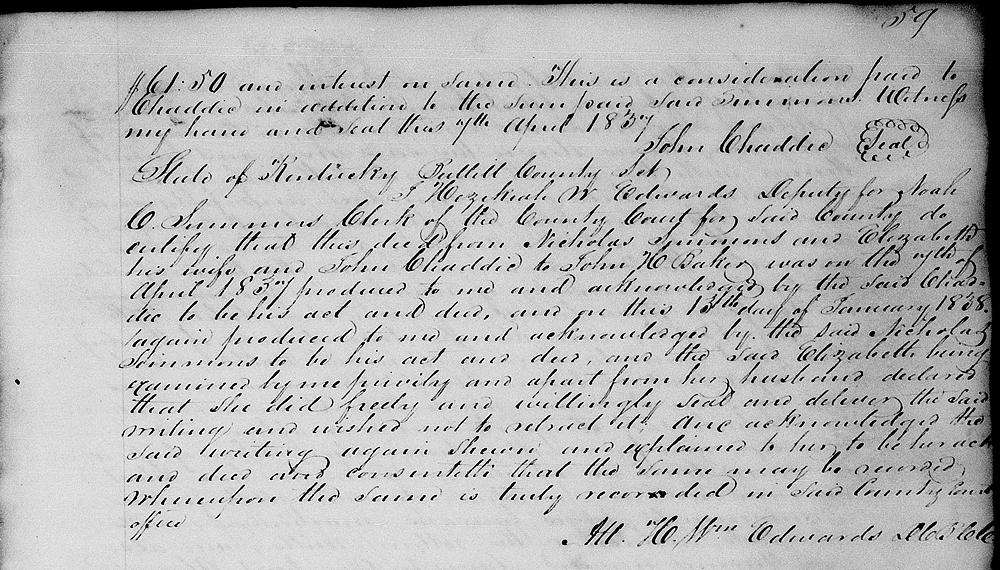 59
$61:50 and interest on same. This is a consideration paid to
Chaddic in addition to the sum paid said Simmons. Witness
my hand and seal this 7th April 1837
John Chaddic Seal
State of Kentucky Bullitt County Sct
I Hezekiah W. Edwards Deputy for Noah
C. Summers Clerk of the County Court for said County do
certify that this deed from Nicholas Simmons and Elizabeth
his wife and John Chaddic to John H Baker was on the 7th of
April 1837 produced to me and acknowledged by the said Chad-
dic to be his act and deed, and on this 13th day of January 1838
again produced to me and acknowledged by the said Nicholas
Simmons to be his act and deed and the said Elizabeth being
examined by me privily and apart from her husband declared
that she did freely and willingly seal and deliver the said
writing and wished not to retract it. And acknowledged the
said writing again shewn and explained to her to be her act
and deed and consenteth that the same may be recorded,
Whereupon the same is truly recorded in said County Court
office
Att. H. Wm Edwards